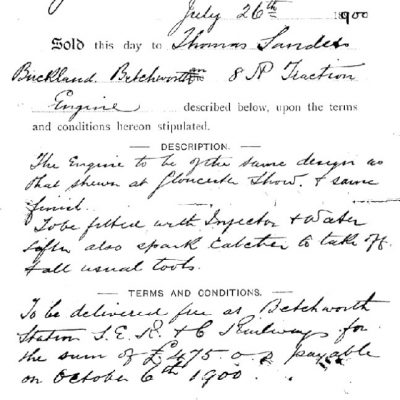 July 26th 1900
Sold this day to Thomas Sanders
Buckland Betchworth an 8 HP Traction
Engine described below, upon the terms
and conditions hereon stipulated.
DESCRIPTION.
The Engine to be of the same design as
that shewn at Gloucester Show. & same
finish.
To be fitted with Injector & Water
lifter also spark catcher to take off
& all usual tools.
TERMS AND CONDITIONS.
To be delivered free at Betchworth
Station S. E. R. & C Railways for
the sum of £475. 0. 0 payable
on October 6th 1900.